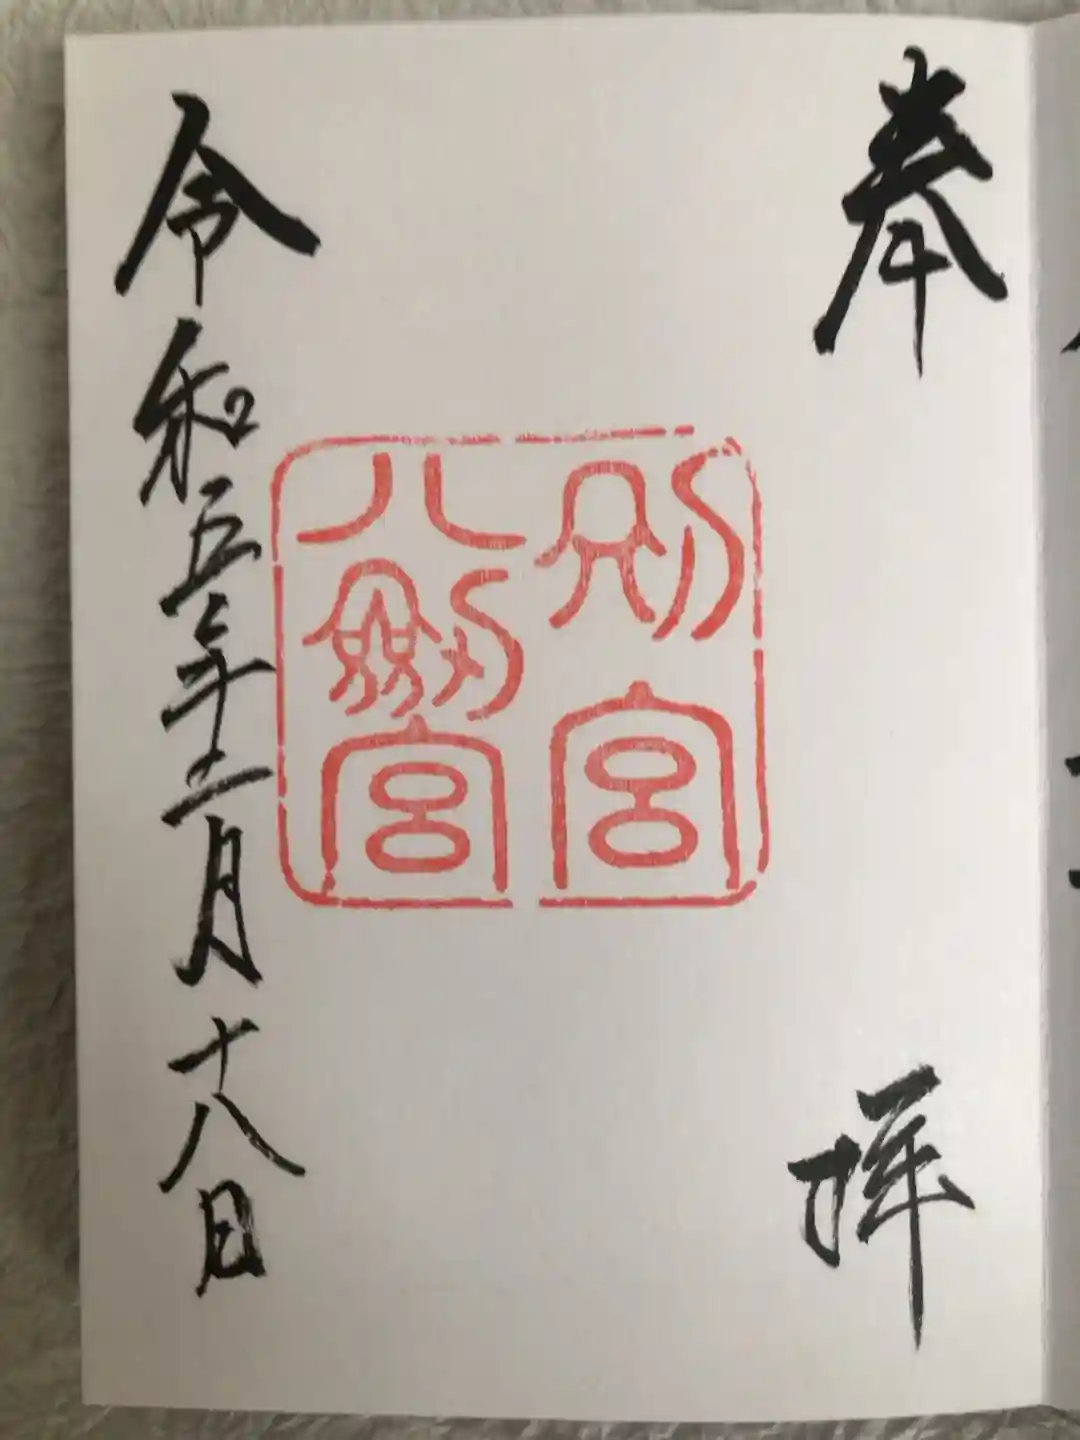 奉拝
別宮
八劔宮
令和五年十一月十八日